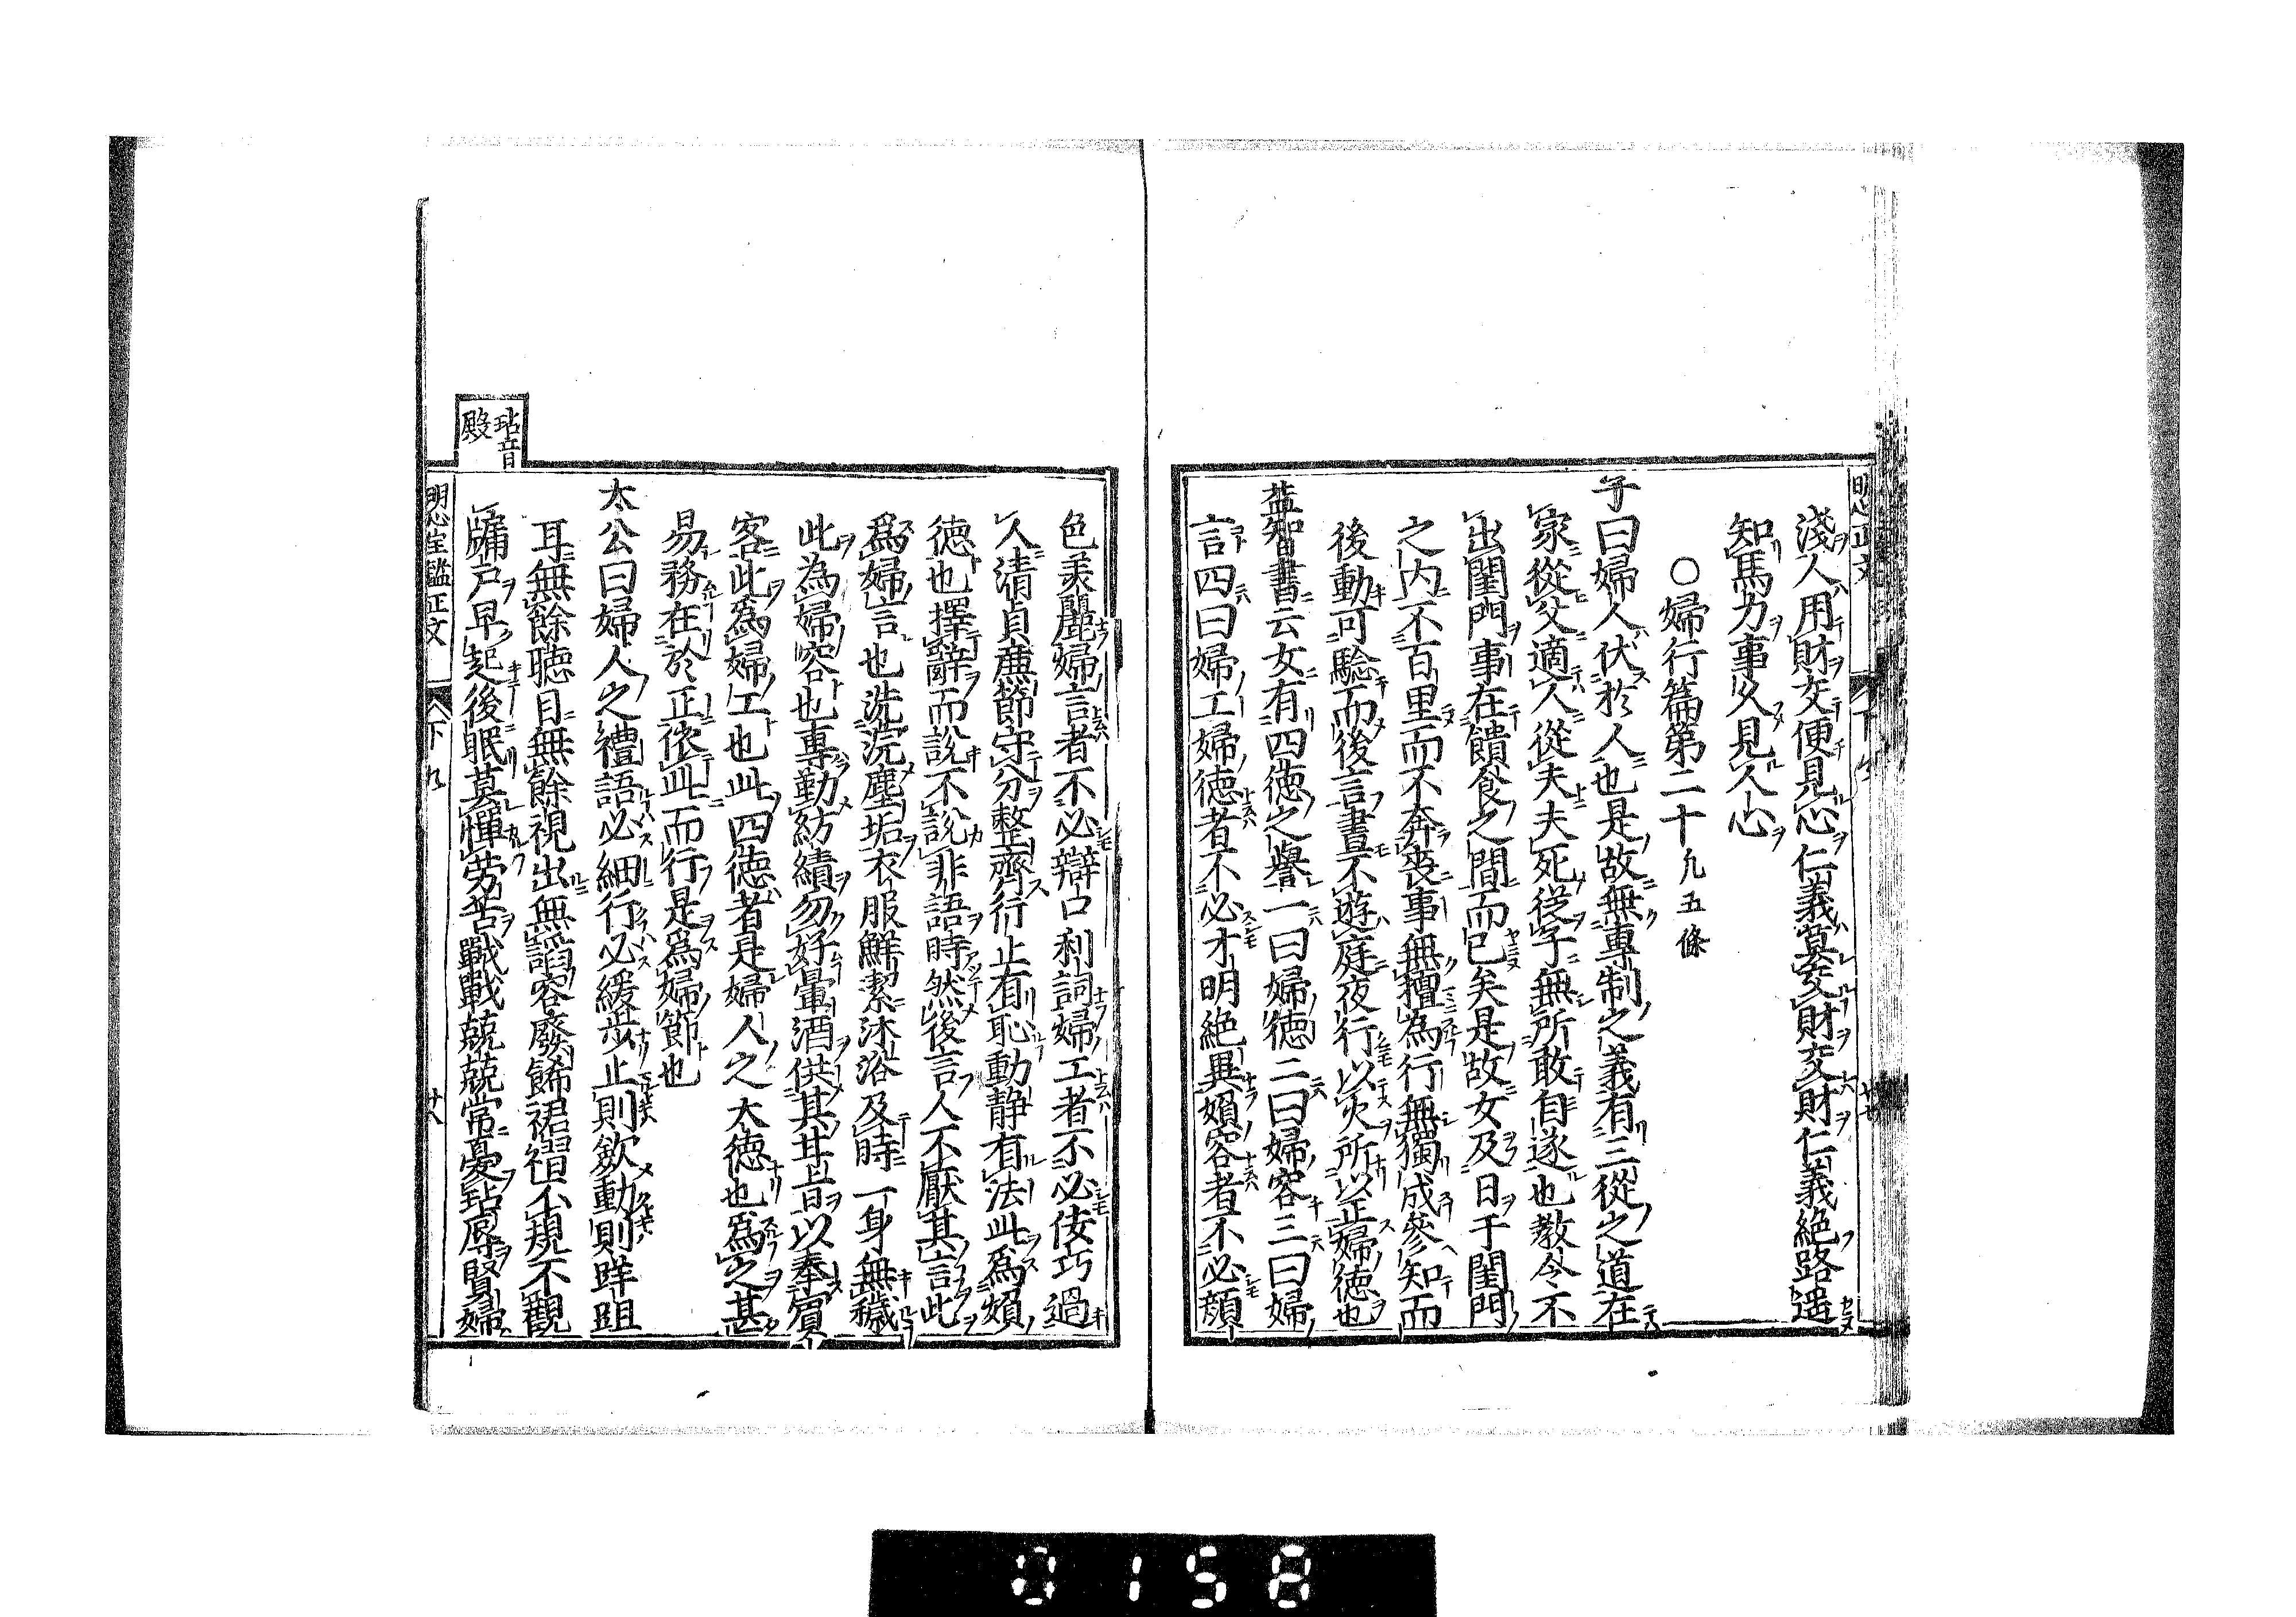 淺人用財交便見心仁義莫交財交財仁義絕路遥
知馬力事久見人心
○婦行篇第二十九五條
子曰婦人伏於人也是故無專制之義有三從之道在
家從父適人從夫夫死從子無所敢自遂也教令不
出閨門事在饋食之間而已矣是故女及日于閨門
之内不百里而不奔喪事無擅為行無獨成參知而
後動可驗而後言晝不遊庭夜行以火所以正婦德也
益智書云女有四德之譽一曰婦德二曰婦容三曰婦
言四曰婦工婦德者不必才明絕異婦容者不必顔
色美麗婦言者不必辯口利詞婦工者不必伎巧過
人清貞廉節守分整齊行止有恥動静有法此爲婦
德也擇辭而説不説非語時然後言人不厭其言此
爲婦言也洗浣塵垢衣服鮮潔沐浴及時一身無穢
此為婦容也專勤紡績勿好暈酒供其甘旨以奉賓
客此爲婦工也此四德者是婦人之太德也爲之甚
易務在於正依此而行是爲婦節也
太公曰婦人之禮語必細行必緩步止則斂動則跘跙
耳無餘聴目無餘視出無諂容廢餙裙褶不規不觀
牖戸早起後眠莫憚劳苦戰戰兢兢常憂玷辱賢婦
玷音
殿
明心宝鑑正文
下
廿八